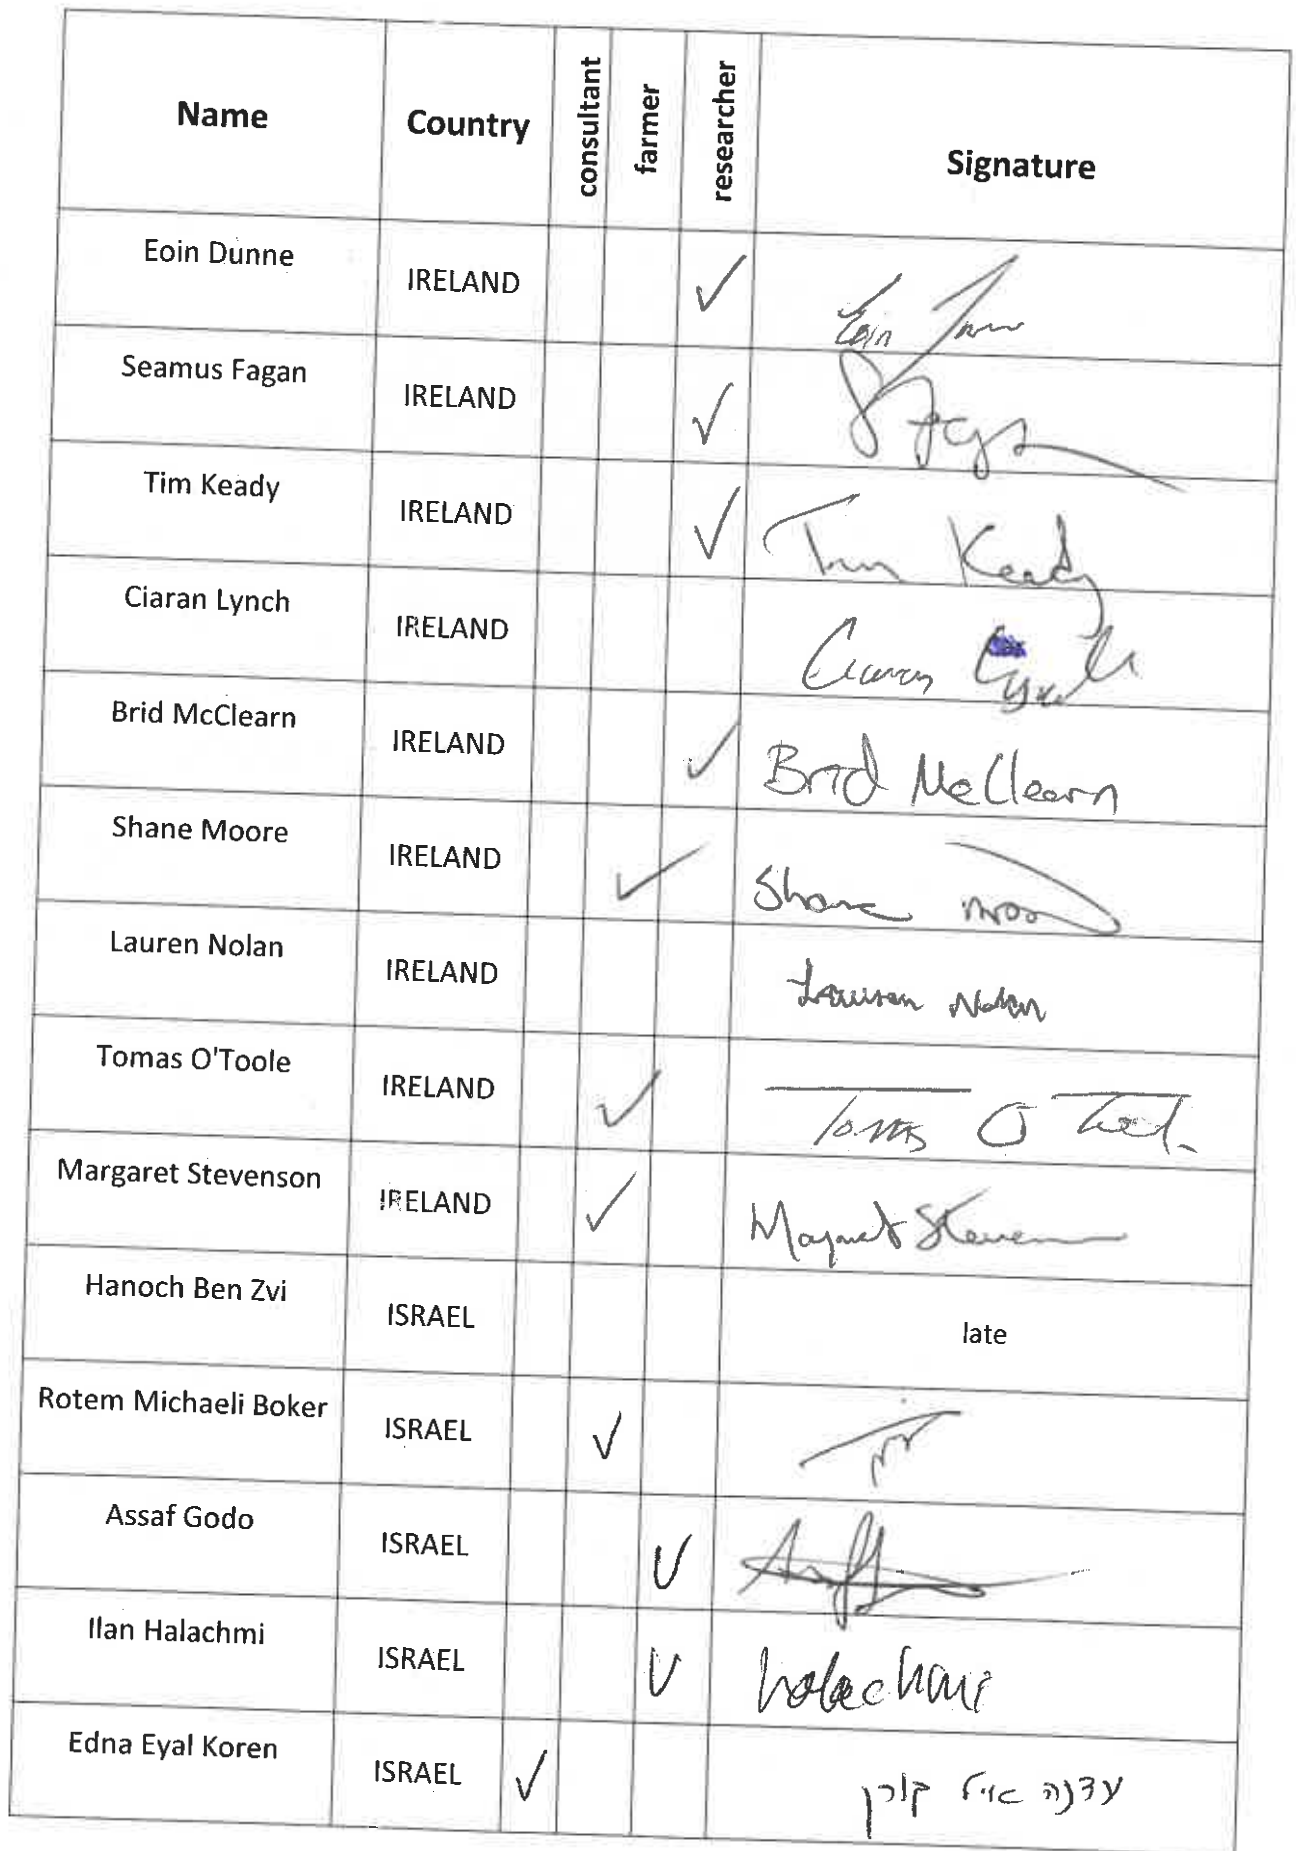 Name Country consultant farmer researcher Signature
Eoin Dunne IRELAND ✓ Eoin Dunne
Seamus Fagan IRELAND ✓
Tim Keady IRELAND ✓ Tim Keady
Ciaran Lynch IRELAND Ciaran Lynch
Brid McClearn IRELAND ✓ Brid McClearn
Shane Moore IRELAND ✓ Shane Moore
Lauren Nolan IRELAND Lauren Nolan
Tomas O'Toole IRELAND ✓ Tomas O Toole
Margaret Stevenson IRELAND ✓ Margaret Stevenson
Hanoch Ben Zvi ISRAEL late
Rotem Michaeli Boker ISRAEL ✓
Assaf Godo ISRAEL ✓
Ilan Halachmi ISRAEL ✓ halachmi
Edna Eyal Koren ISRAEL ✓ עדנה אייל קורן